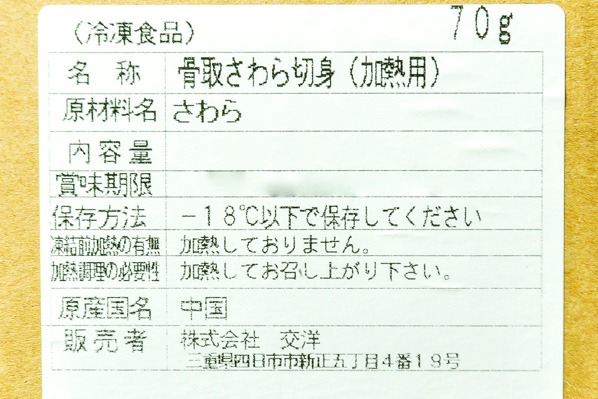 （冷凍食品） 70g
名称 骨取さわら切身（加熱用）
原材料名 さわら
内容量
賞味期限
保存方法 －18℃以下で保存してください
凍結前加熱の有無 加熱しておりません。
加熱調理の必要性 加熱してお召し上がり下さい。
原産国名 中国
販売者 株式会社 交洋
三重県四日市市新正五丁目4番19号